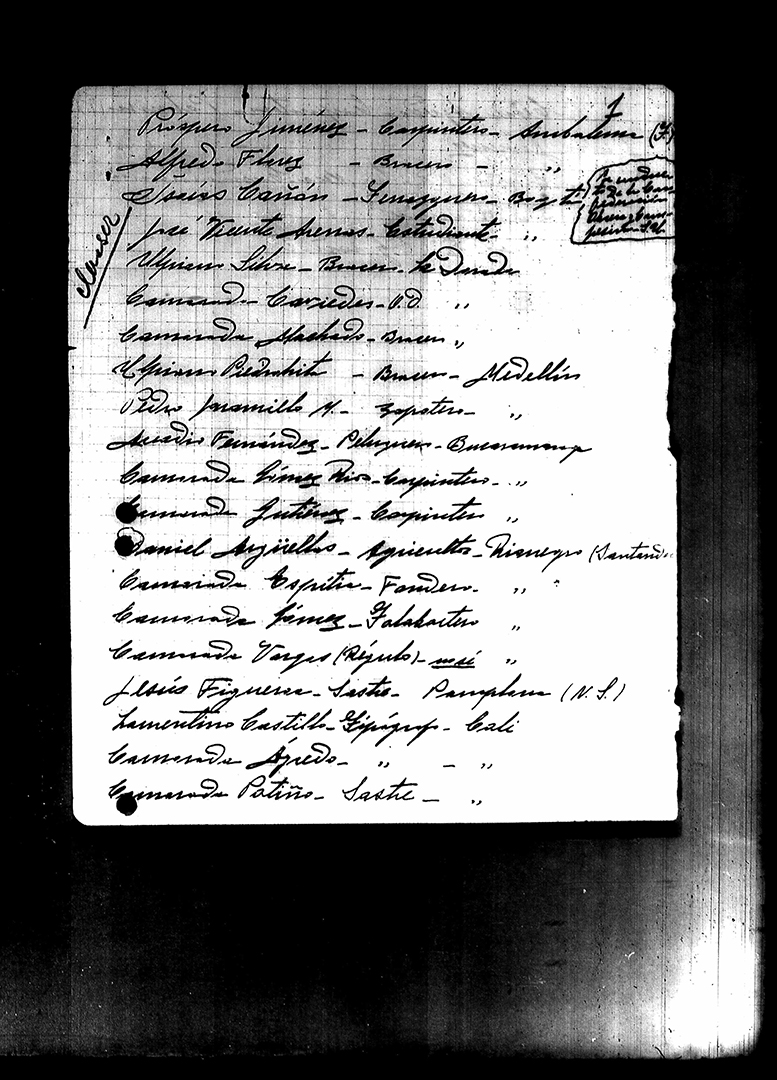 1
Próspero Jiménez - Carpintero - Ambalema (T.)
Alfredo Florez - Bracero - "
Isaías Cañón - Bogotá
José Vicente Arenas - Estudiante - "
Silva - Bracero - La Dorada
Camarada Caviedes - "
Camarada Machado - Bracero "
Piedrahita - Bracero - Medellín
Pedro Jaramillo M. - Zapatero - "
Arcadio Fernández - Peluquero - Bucaramanga
Camarada Gómez Ríos - Carpintero - "
Camarada Gutiérrez - Carpintero "
Daniel Argüellos - Agricultor - Rionegro (Santander
Camarada Espitia - Fondero - " "
Camarada Gómez - Talabartero "
Camarada Vargas (Régulo) - "
Jesús Figueroa - Sastre - Pamplona (N. S.)
Laurentino Castillo - Tipógrafo - Cali
Camarada Agredo - " - "
Camarada Patiño - Sastre - "